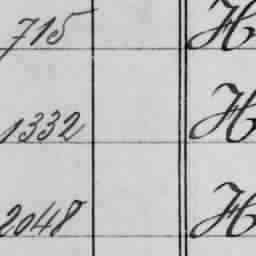 715 H
1332 H
2048 H